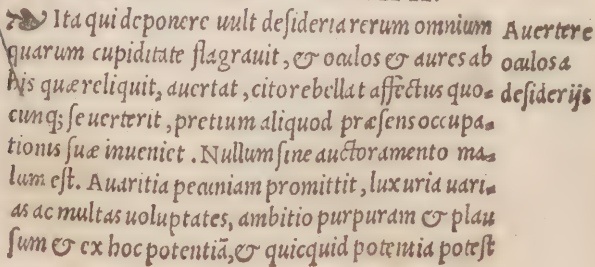 Ita qui deponere uult deſideria rerum omnium
quarum cupiditate flagrauit, & oculos & aures ab
his quæ reliquit, auertat, cito rebellat affectus quo⸗
cunq; ſe uerterit, pretium aliquod præſens occupa⸗
tionis ſuæ inueniet. Nullum ſine auctoramento ma⸗
lum eſt. Auaritia pecuniam promittit, luxuria uari⸗
as ac multas uoluptates, ambitio purpuram & plau
ſum & ex hoc potentiā, & quicquid potentia poteſt
Auertere
oculos a
deſiderijs